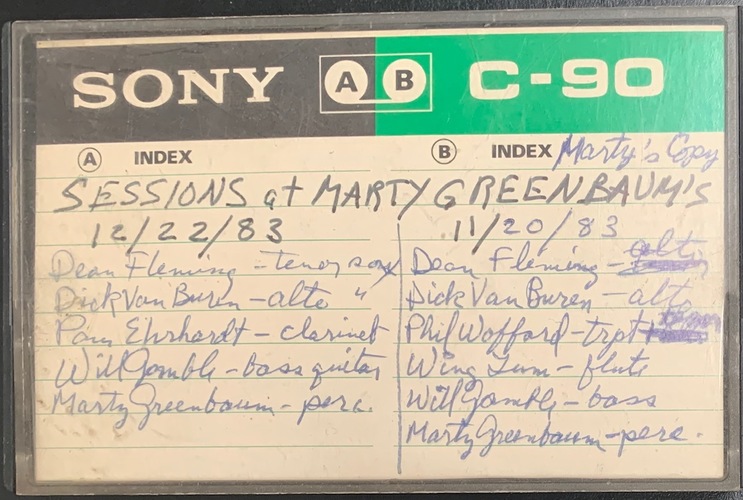 SONY A B C-90
A INDEX
B INDEX Marty's Copy
SESSIONS at MARTY GREENBAUM'S
12/22/83
Dean Fleming - tenor sax
Dick Van Buren - alto "
Pam Ehrhardt - clarinet
Will Gamble - bass guitar
Marty Greenbaum - perc.
11/20/83
Dean Fleming - alto
Dick Van Buren - alto
Phil Wofford - trpt +
Wing Lum - flute
Will Gamble - bass
Marty Greenbaum - perc.